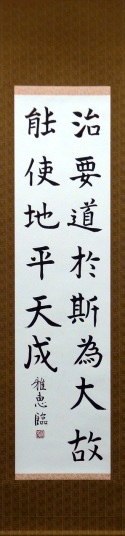 治要道於斯為大故
能使地平天成
雅恵臨